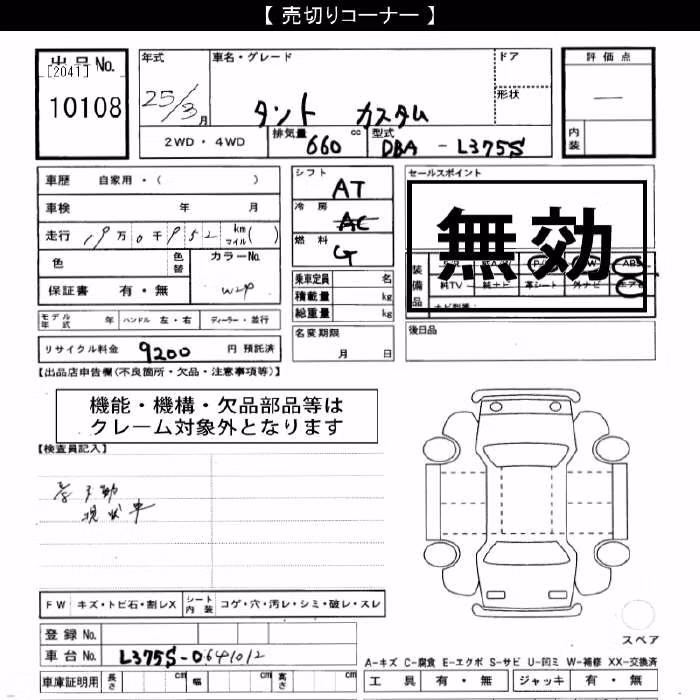 【 売切りコーナー 】
出品 No.
[2041]
10108
年式
25/3月
車名・グレード
タント カスタム
ドア
形状
評価点
―
内装
2WD・4WD
排気量 660 cc
型式 DBA - L375S
車歴 自家用・( )
車検 年 月
走行 19万0千952 km マイル ( )
色 色替 カラーNo.
保証書 有・無
モデル年式 年 ハンドル 左・右 ディーラー・並行
リサイクル料金 9200 円 預託済
シフト AT
冷房 AC
燃料 G
乗車定員 名
積載量 kg
総重量 kg
名変期限
月 日
セールスポイント
無効
装備品
ABS
純TV 純ナビ 革シート 外ナビ エアB
後日品
【出品店申告欄(不良箇所・欠品・注意事項等)】
機能・機構・欠品部品等は
クレーム対象外となります
【検査員記入】
不動
現状車
FW キズ・トビ石・割レX
シート内装 コゲ・穴・汚レ・シミ・破レ・スレ
登録 No.
車台 No. L375S-0641012
車庫証明用 長さ cm 幅 cm 高さ cm
スペア
A-キズ C-腐食 E-エクボ S-サビ U-凹ミ W-補修 XX-交換済
工具 有・無 ジャッキ 有・無